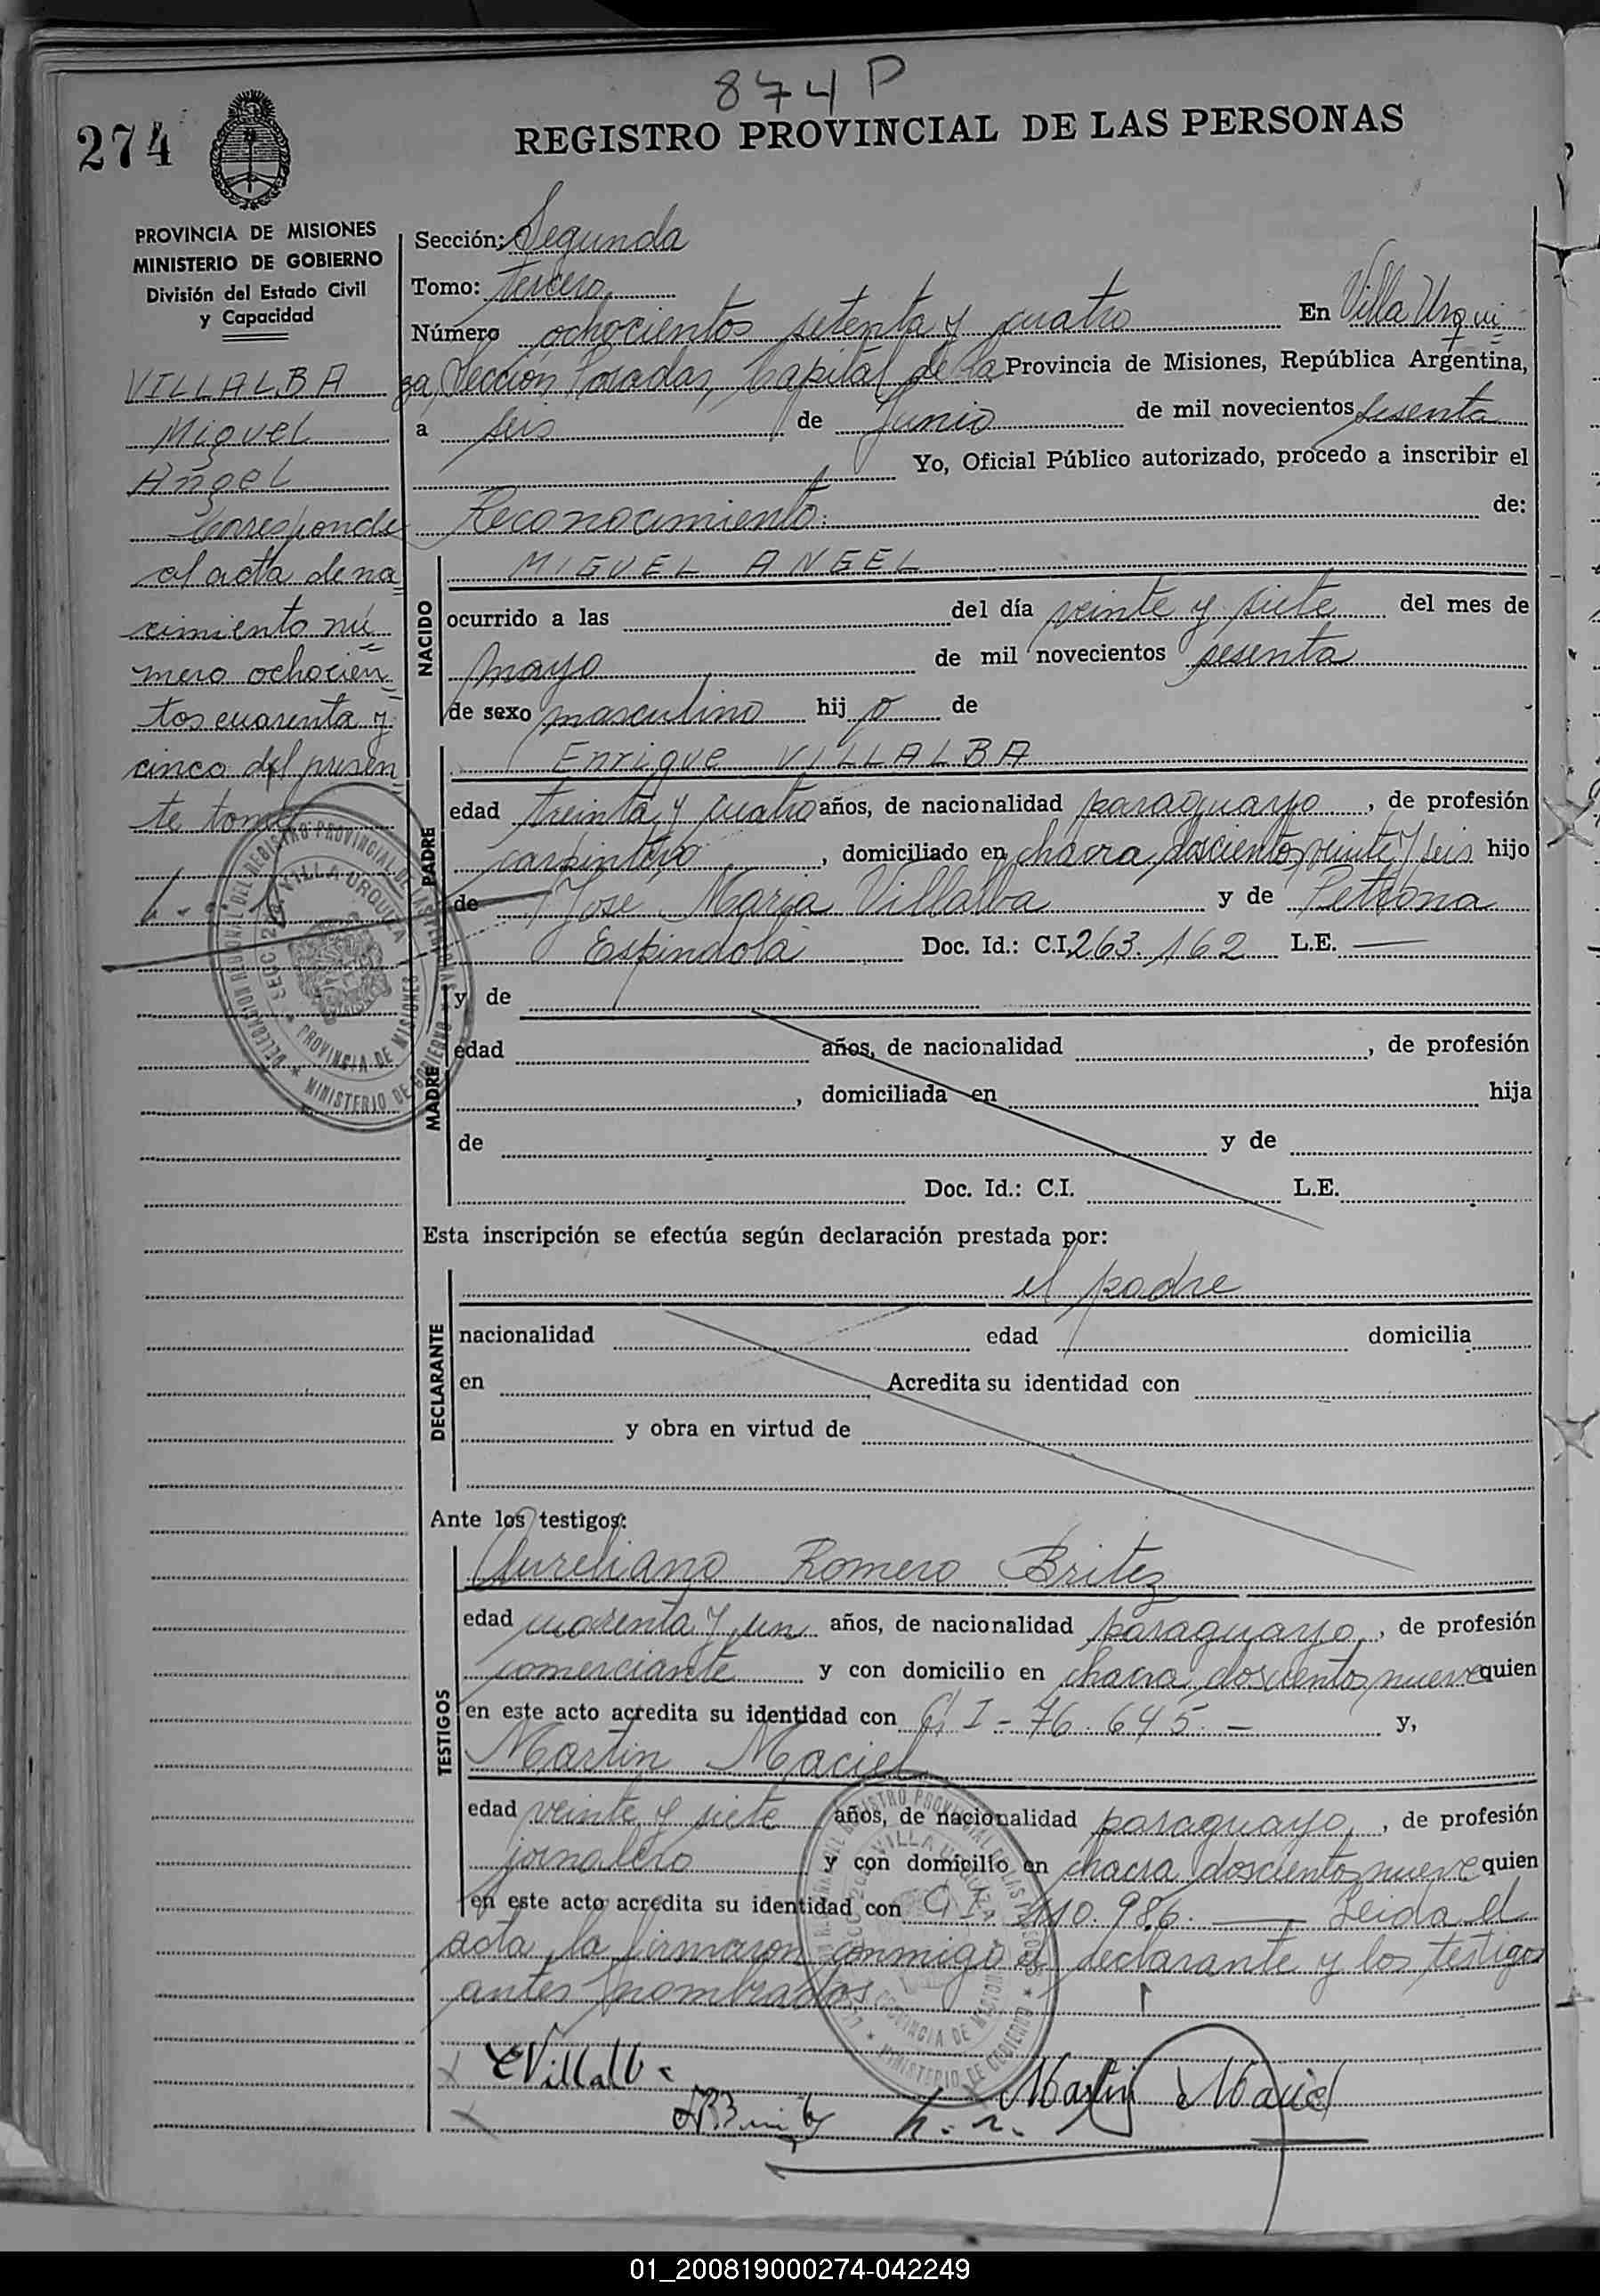 874 P
274
REGISTRO PROVINCIAL DE LAS PERSONAS
PROVINCIA DE MISIONES
MINISTERIO DE GOBIERNO
División del Estado Civil
y Capacidad
VILLALBA
Miguel
Angel
Corresponde
al acta de na
cimiento nú
mero ochocien
tos cuarenta y
cinco del presen
te tomo
Sección: Segunda
Tomo: tercero
Número ochocientos setenta y cuatro En Villa Urqui
za, Sección Posadas, Capital de la Provincia de Misiones, República Argentina,
a seis de Junio de mil novecientos sesenta
Yo, Oficial Público autorizado, procedo a inscribir el
Reconocimiento de:
NACIDO
MIGUEL ANGEL
ocurrido a las del día veinte y siete del mes de
mayo de mil novecientos sesenta
de sexo masculino hij o de
PADRE
Enrique VILLALBA
edad treinta y cuatro años, de nacionalidad paraguayo, de profesión
carpintero, domiciliado en chacra doscientos veinte y seis hijo
de Jose Maria Villalba y de Petrona
Espindola Doc. Id.: C.I. 263.162 L.E. —
MADRE
y de
edad años, de nacionalidad , de profesión
, domiciliada en hija
de y de
Doc. Id.: C.I. L.E.
DELEGACION REGIONAL DEL REGISTRO PROVINCIAL DE LAS PERSONAS
SECC 2da VILLA URQUIZA
PROVINCIA DE MISIONES
MINISTERIO DE GOBIERNO
Esta inscripción se efectúa según declaración prestada por:
DECLARANTE
el padre
nacionalidad edad domicilia
en Acredita su identidad con
y obra en virtud de
Ante los testigos:
TESTIGOS
Aureliano Romero Britez
edad cuarenta y un años, de nacionalidad paraguayo, de profesión
comerciante y con domicilio en chacra doscientos nueve quien
en este acto acredita su identidad con C. I - 76.645. — y,
Martin Maciel
edad veinte y siete años, de nacionalidad paraguayo, de profesión
jornalero y con domicilio en chacra doscientos nueve quien
en este acto acredita su identidad con C. I. 110.986. — Leida el
acta, la firmaron conmigo el declarante y los testigos
antes nombrados.
EVillalba
Martin Maciel
01_200819000274-042249